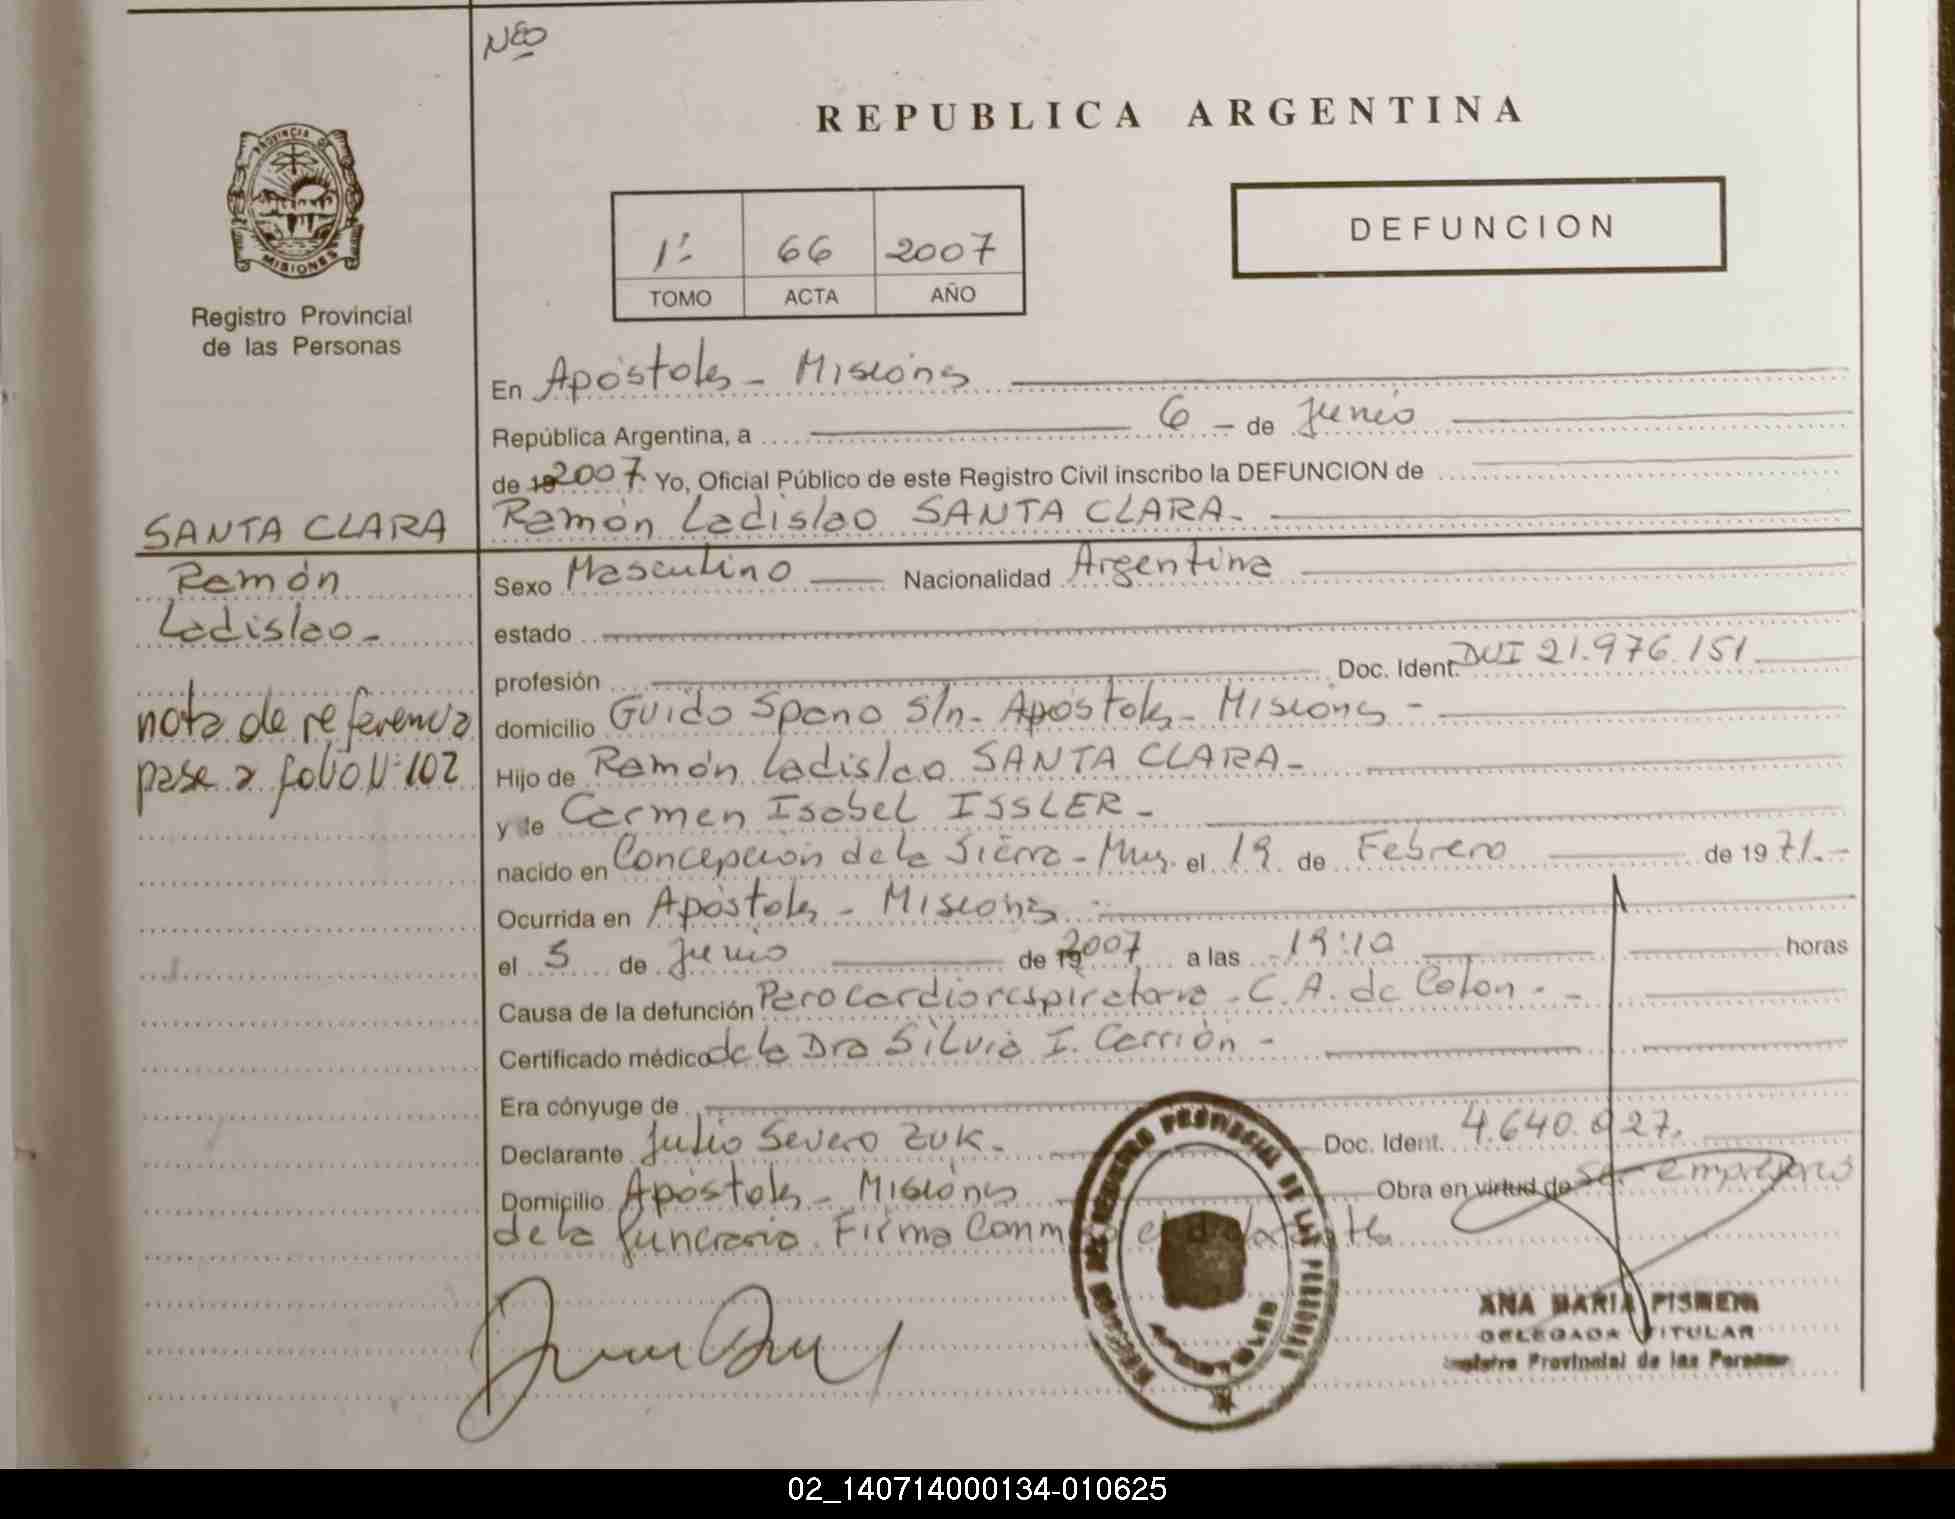 NEO
REPUBLICA ARGENTINA
PROVINCIA DE
MISIONES
Registro Provincial
de las Personas
1º 66 2007
TOMO ACTA AÑO
DEFUNCION
En Apóstoles - Misiones
República Argentina, a 6 - de Junio
de 19 2007 Yo, Oficial Público de este Registro Civil inscribo la DEFUNCION de
Ramón Ladislao SANTA CLARA -
SANTA CLARA
Ramón
Ladislao -
nota de referencia
pase a folio Nº 102
Sexo Masculino Nacionalidad Argentina
estado
profesión Doc. Ident. DUI 21.976.151
domicilio Guido Spano s/n - Apóstoles - Misiones -
Hijo de Ramón Ladislao SANTA CLARA -
y de Carmen Isabel ISSLER -
nacido en Concepción de la Sierra - Mnes. el 19 de Febrero de 1971. -
Ocurrida en Apóstoles - Misiones
el 5 de Junio de 19 2007 a las 19:10 horas
Causa de la defunción Parocardiorespiratorio - C. A. de Colon - -
Certificado médico de la Dra Silvia I. Carrión -
Era cónyuge de
Declarante Julio Severo ZUK - Doc. Ident. 4.640.827.
Domicilio Apóstoles - Misiones Obra en virtud de ser empresario
de la funeraria. Firma Conmigo el declarante
REGISTRO PROVINCIAL DE LAS PERSONAS
ANA MARIA
DELEGADA TITULAR
Registro Provincial de las Personas
02_140714000134-010625